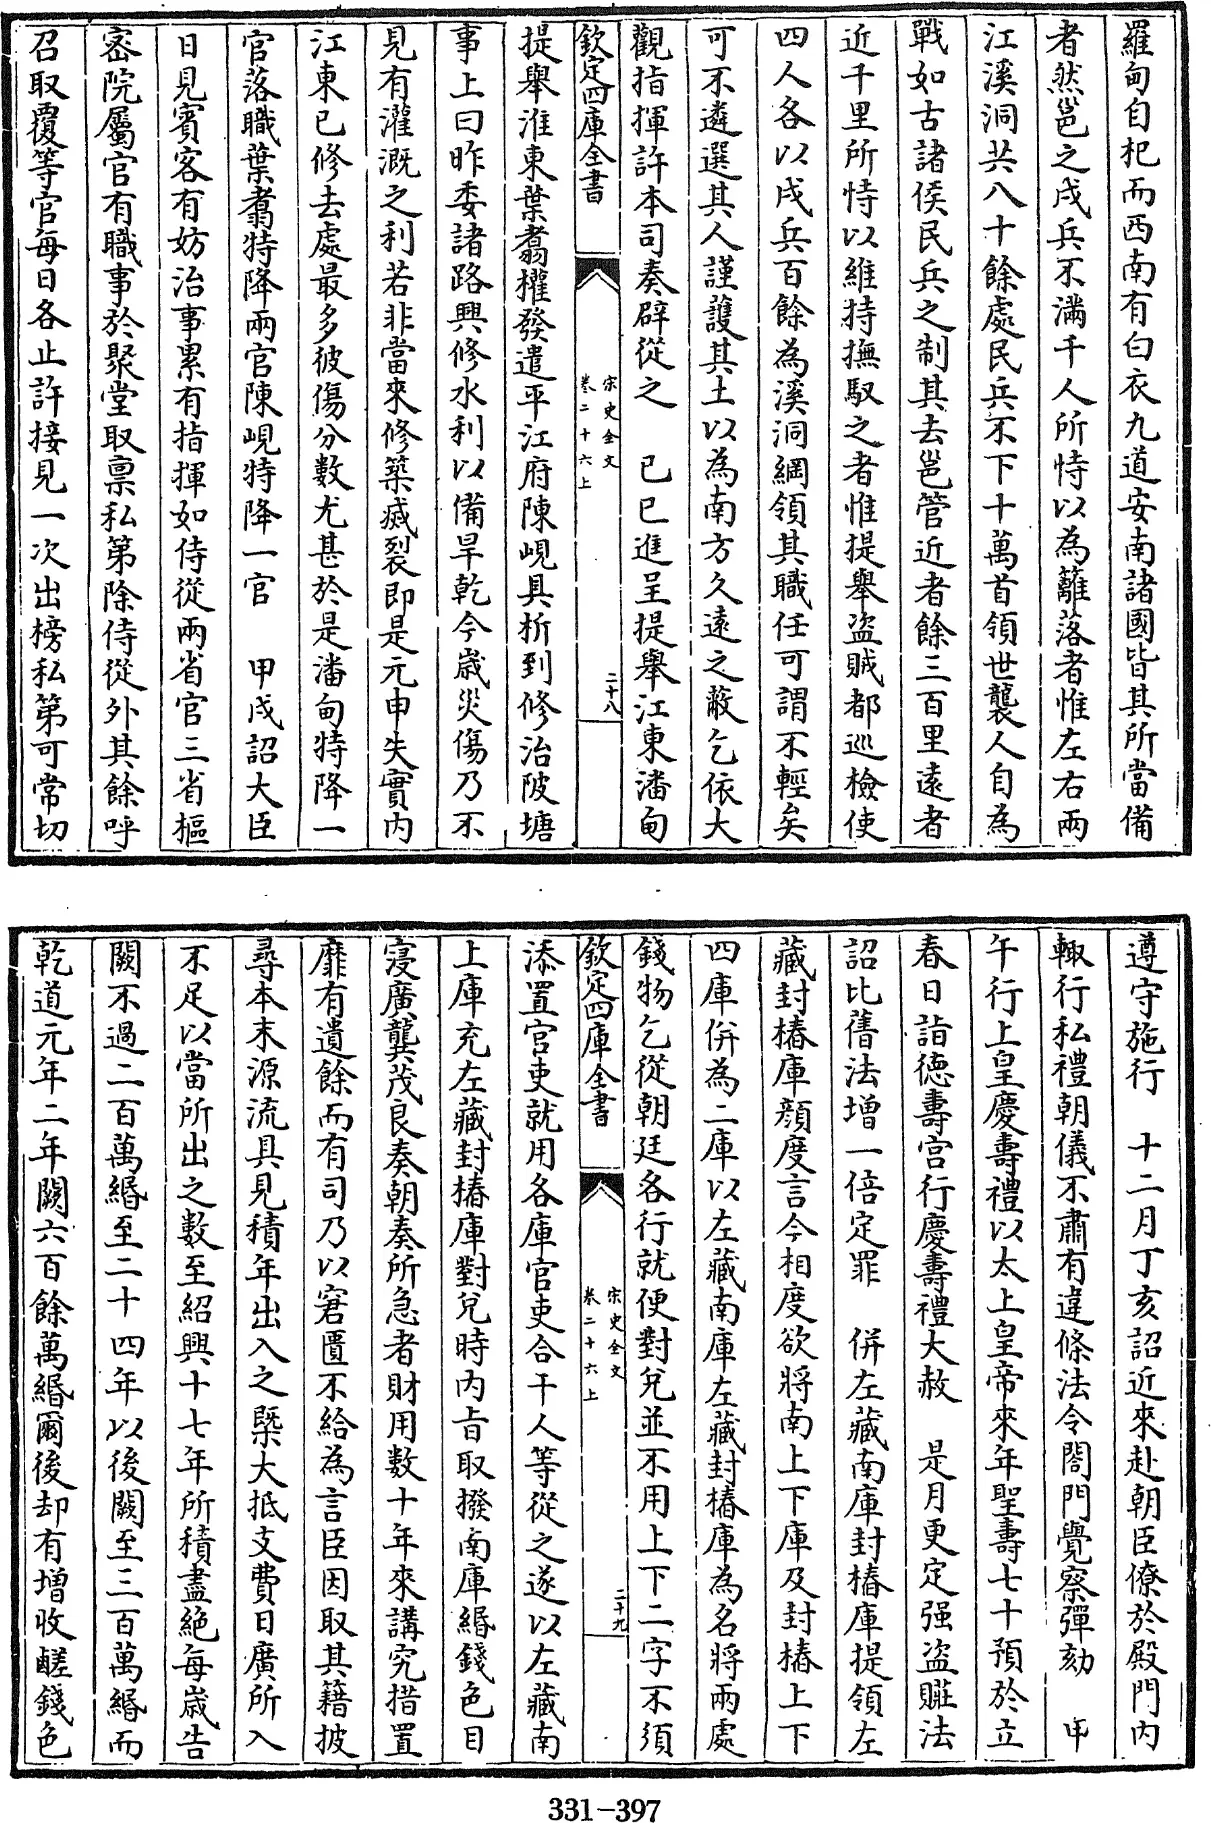 羅甸自杞而西南有白衣九道安南諸國皆其所當備
者然邕之戍兵不滿千人所恃以為籬落者惟左右兩
江溪洞共八十餘處民兵不下十萬首領世襲人自為
戰如古諸侯民兵之制其去邕管近者餘三百里遠者
近千里所恃以維持撫馭之者惟提舉盜賊都巡檢使
四人各以戍兵百餘為溪洞綱領其職任可謂不輕矣
可不遴選其人謹護其土以為南方久遠之蔽乞依大
觀指揮許本司奏辟從之　己巳進呈提舉江東潘甸
欽定四庫全書
宋史全文
卷二十六上
二十八
提舉淮東葉翥權發遣平江府陳峴具析到修治陂塘
事上曰昨委諸路興修水利以備旱乾今歲災傷乃不
見有灌溉之利若非當來修築滅裂即是元申失實內
江東已修去處最多彼傷分數尤甚於是潘甸特降一
官落職葉翥特降兩官陳峴特降一官　甲戌詔大臣
日見賓客有妨治事累有指揮如侍從兩省官三省樞
密院屬官有職事於聚堂取稟私第除侍從外其餘呼
召取覆等官每日各止許接見一次出榜私第可常切
遵守施行　十二月丁亥詔近來赴朝臣僚於殿門內
輙行私禮朝儀不肅有違條法令閤門覺察彈劾　甲
午行上皇慶壽禮以太上皇帝來年聖壽七十預於立
春日詣德壽宮行慶壽禮大赦　是月更定强盜贓法
詔比舊法增一倍定罪　併左藏南庫封樁庫提領左
藏封樁庫顔度言今相度欲將南上下庫及封樁上下
四庫併為二庫以左藏南庫左藏封樁庫為名將兩處
錢物乞從朝廷各行就便對兌並不用上下二字不須
欽定四庫全書
宋史全文
卷二十六上
二十九
添置官吏就用各庫官吏合干人等從之遂以左藏南
上庫充左藏封樁庫對兌時內旨取撥南庫緡錢色目
寖廣龔茂良奏朝奏所急者財用數十年來講究措置
靡有遺餘而有司乃以窘匱不給為言臣因取其籍披
尋本末源流具見積年出入之槩大抵支費日廣所入
不足以當所出之數至紹興十七年所積盡絕每歲告
闕不過二百萬緡至二十四年以後闕至三百萬緡而
乾道元年二年闕六百餘萬緡爾後却有增收鹺錢色
331-397